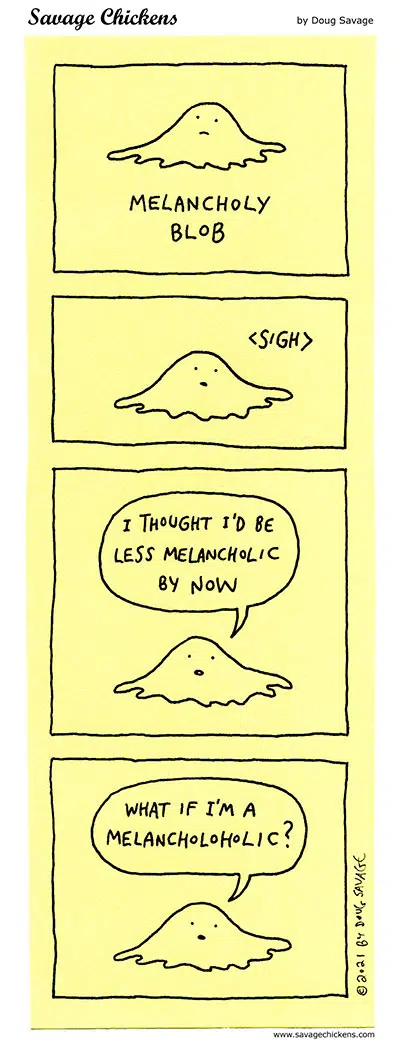 Savage Chickens
by Doug Savage
MELANCHOLY
BLOB
<SIGH>
I THOUGHT I'D BE
LESS MELANCHOLIC
BY NOW
WHAT IF I'M A
MELANCHOLOHOLIC?
©2021 BY DOUG SAVAGE
www.savagechickens.com